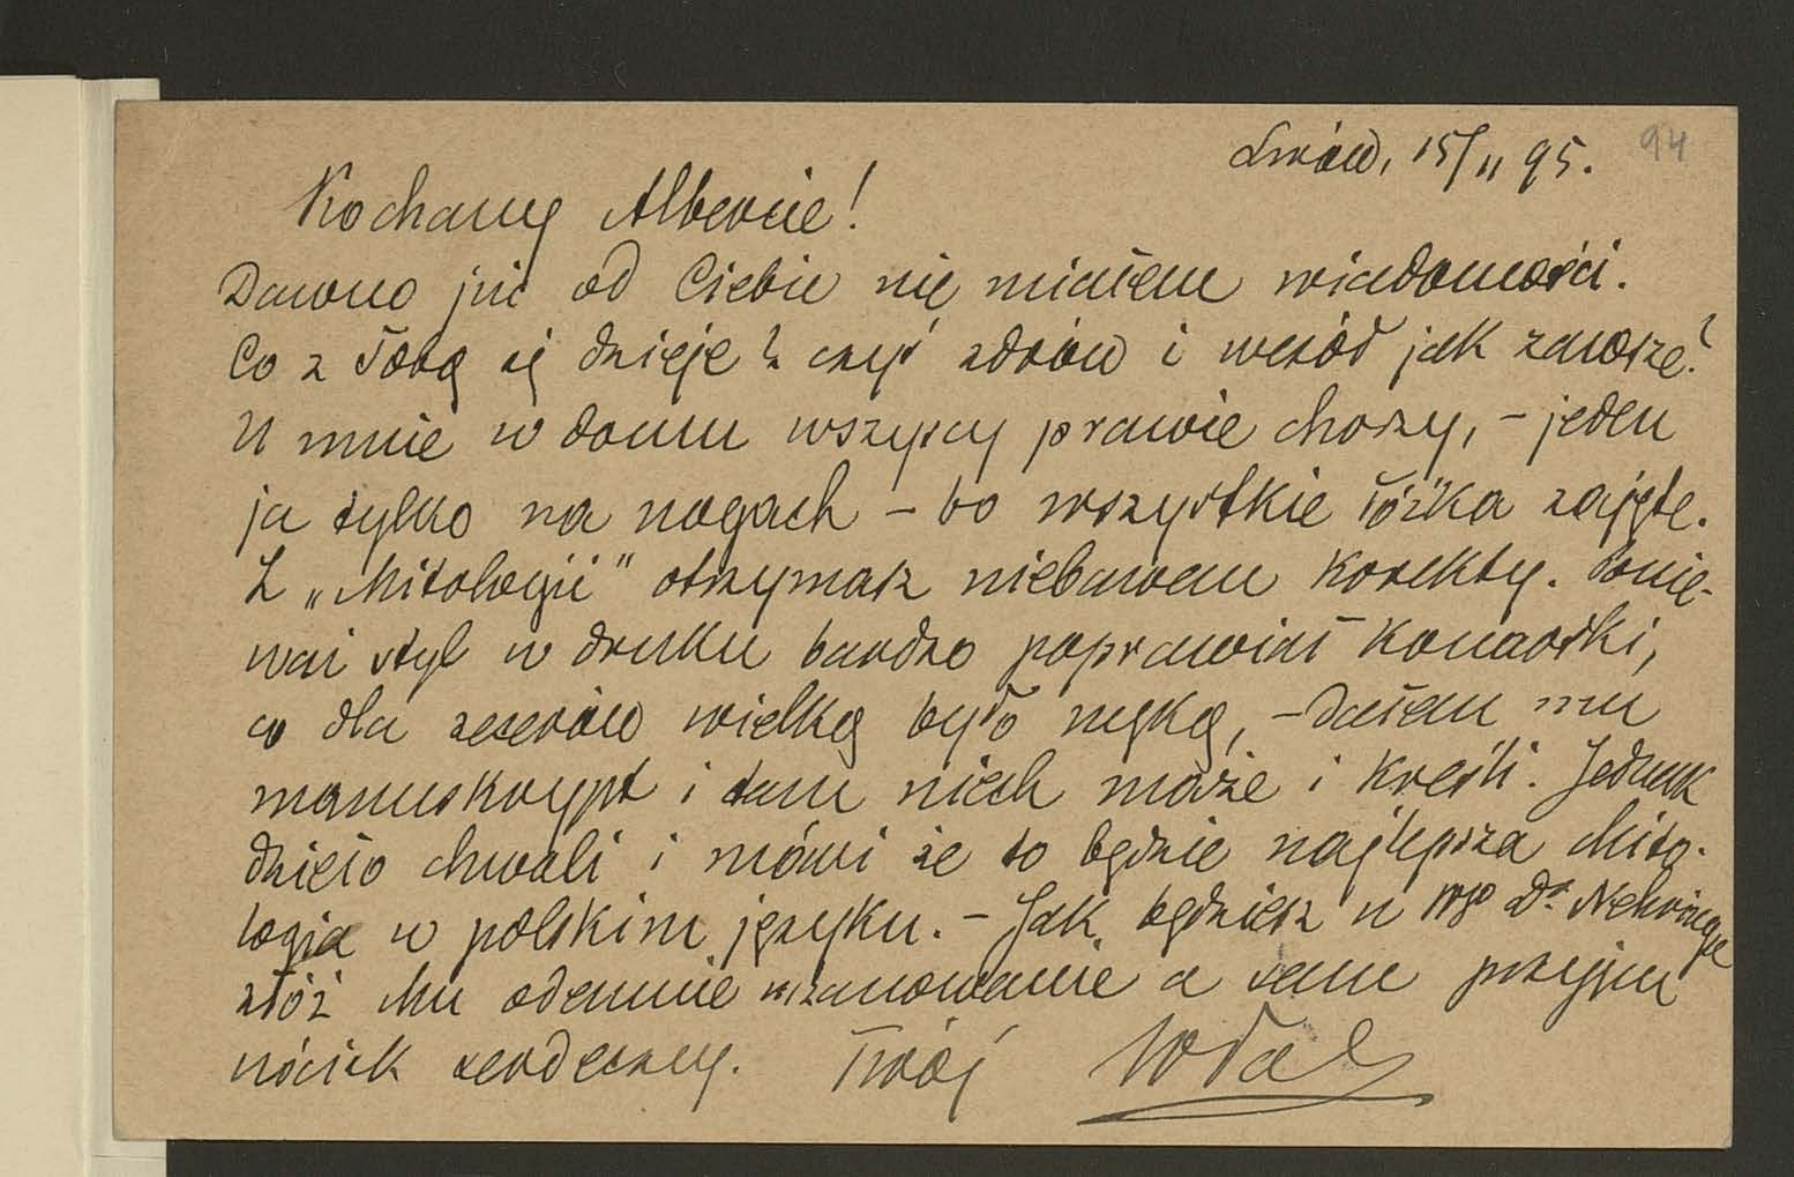 94
Lwów, 15/II 95.
Kochany Albercie!
Dawno już od Ciebie nie miałem wiadomości.
Co z Tobą się dzieje? czyś zdrów i wesół jak zawsze?
U mnie w domu wszyscy prawie chorzy, – jeden
ja tylko na nogach – bo wszystkie łóżka zajęte.
Z „Mitologii" otrzymasz niebawem korekty. Ponie-
waż styl w druku bardzo poprawiał Konarski,
co dla zecerów wielką było męką, – dałem mu
manuskrypt i tam niech maże i kreśli. Jednak
dzieło chwali i mówi że to będzie najlepsza Mito-
logia w polskim języku. – Jak będziesz u Wgo Dr. Nehringa
złóż Mu odemnie uszanowanie a sam przyjm
uścisk serdeczny. Twój